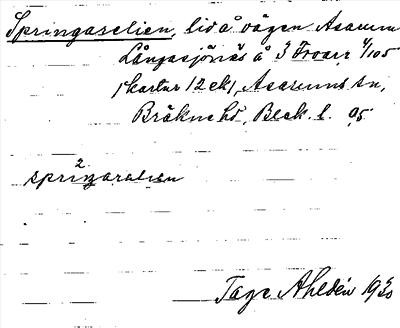 Springaselien, lid å vägen Asarum
Långasjönäs å 3 Froarr 4/105
1 kartur 12 ek 1, Asarums sn,
Bräkne hd, Blek. l. 95
2
springaralien
Tage Ahldén 1930